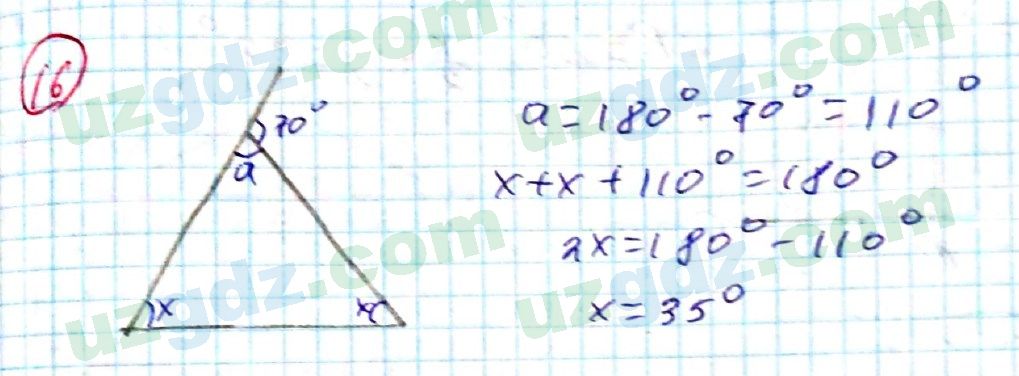 16
70°
a
x
x
a=180°-70°=110°
x+x+110°=180°
2x=180°-110°
x=35°
uzgdz.com
uzgdz.com
uzgdz.com
uzgdz.com
uzgdz.com
uzgdz.com